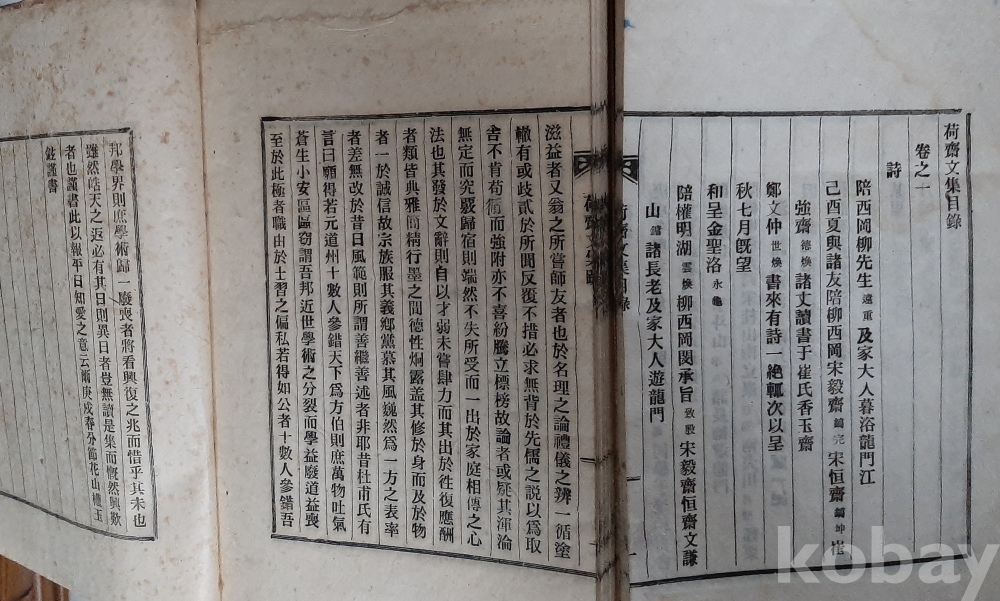 荷齋文集目錄
卷之一
詩
陪西岡柳先生遠重及家大人暮浴龍門江
己酉夏與諸友陪柳西岡宋毅齋鎬完宋恒齋鎬坤崔
強齋德煥諸丈讀書于崔氏香玉齋
鄭文仲世煥書來有詩一絶輒次以呈
秋七月旣望
和呈金聖洛永龜
陪權明湖雲煥柳西岡閔承旨致殷宋毅齋恒齋文謙
山鏞諸長老及家大人遊龍門
荷齋文集目錄
一
荷齋文集跋
滋益者又翁之所嘗師友者也於名理之論禮儀之辨一循塗
轍有或歧貳於所聞反覆不措必求無背於先儒之說以爲取
舍不肯苟循而強附亦不喜紛騰立標榜故論者或疑其渾淪
無定而究嚴歸宿則端然不失所受而一出於家庭相傳之心
法也其發於文辭則自以才弱未嘗肆力而其出於徃復應酬
者類皆典雅簡精行墨之間德性炯露盖其修於身而及於物
者一於誠信故宗族服其義鄕黨慕其風巍然爲一方之表率
者差無改於昔日風範則所謂善繼善述者非耶昔杜甫氏有
言曰願得若元道州十數人參錯天下爲方伯則庶萬物吐氣
蒼生小安區區窃謂吾邦近世學術之分裂而學益廢道益喪
至於此極者職由於士習之偏私若得如公者十數人參錯吾
邦學界則庶學術歸一廢喪者將看興復之兆而惜乎其未也
雖然皓天之返必有其日則異日者豈無讀是集而慨然興歎
者也謹書此以報平日知愛之意云爾庚戌春分節花山權玉
鉉謹書